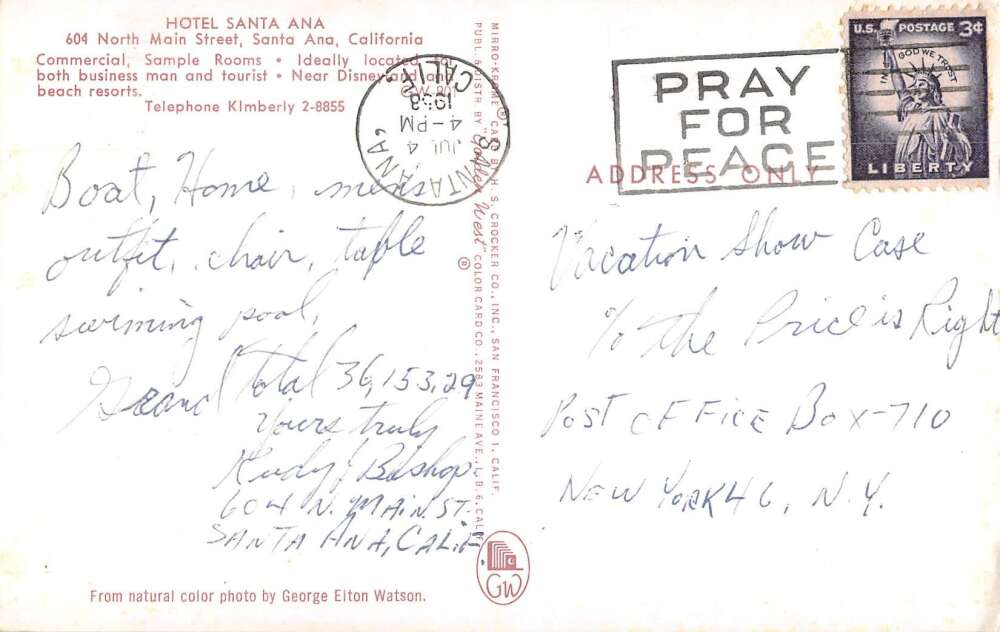 HOTEL SANTA ANA
604 North Main Street, Santa Ana, California
Commercial, Sample Rooms • Ideally located
both business man and tourist • Near Disneyland and
beach resorts.
Telephone KImberly 2-8855
SANTA ANA,
CALIF.
JUL 4
4-PM
1958
PRAY
FOR
PEACE
U.S. POSTAGE 3¢
IN GOD WE TRUST
LIBERTY
Boat, Home, mens
outfit, chair, table
swiming pool,
Grand Total 36,153,29
Yours truly
Rudy J Bishop
604 N. MAIN ST.
SANTA ANA, CALIF.
MIRRO-KROME® CARD BY H. S. CROCKER CO., INC., SAN FRANCISCO 1, CALIF.
PUBL. & DISTR. BY "Golden West" COLOR CARD CO., 2583 MAINE AVE., L. B. 6, CALIF.
®
GW
ADDRESS ONLY
Vacation Show Case
% The Price is Right
POST OFFICE BOX-710
NEW YORK 46, N.Y.
From natural color photo by George Elton Watson.